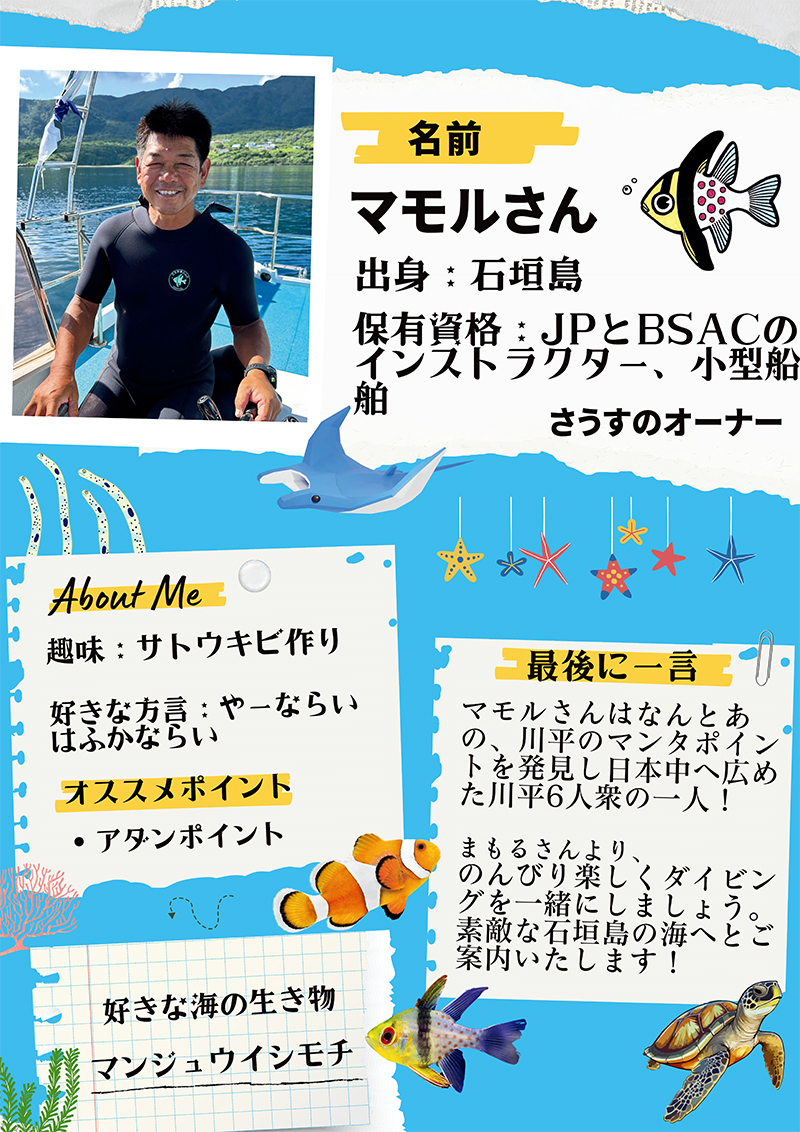 名前
マモルさん
出身：石垣島
保有資格：JPとBSACの
インストラクター、小型船
舶
さうすのオーナー
About Me
趣味：サトウキビ作り
好きな方言：やーならい
はふかならい
オススメポイント
• アダンポイント
最後に一言
マモルさんはなんとあ
の、川平のマンタポイン
トを発見し日本中へ広め
た川平6人衆の一人！
まもるさんより、
のんびり楽しくダイビン
グを一緒にしましょう。
素敵な石垣島の海へとご
案内いたします！
好きな海の生き物
マンジュウイシモチ